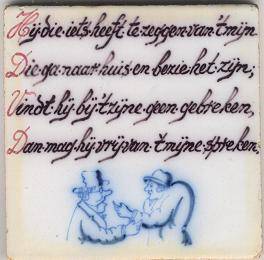 Hij·die·iets·heeft·te·zeggen·van·'t·mijn
Die·ga·naar·huis·en·bezie·het·zijn;
Vindt·hij·bij·'t·zijne·geen·gebreken,
Dan·mag·hij·vrij·van·'t·mijne·spreken.